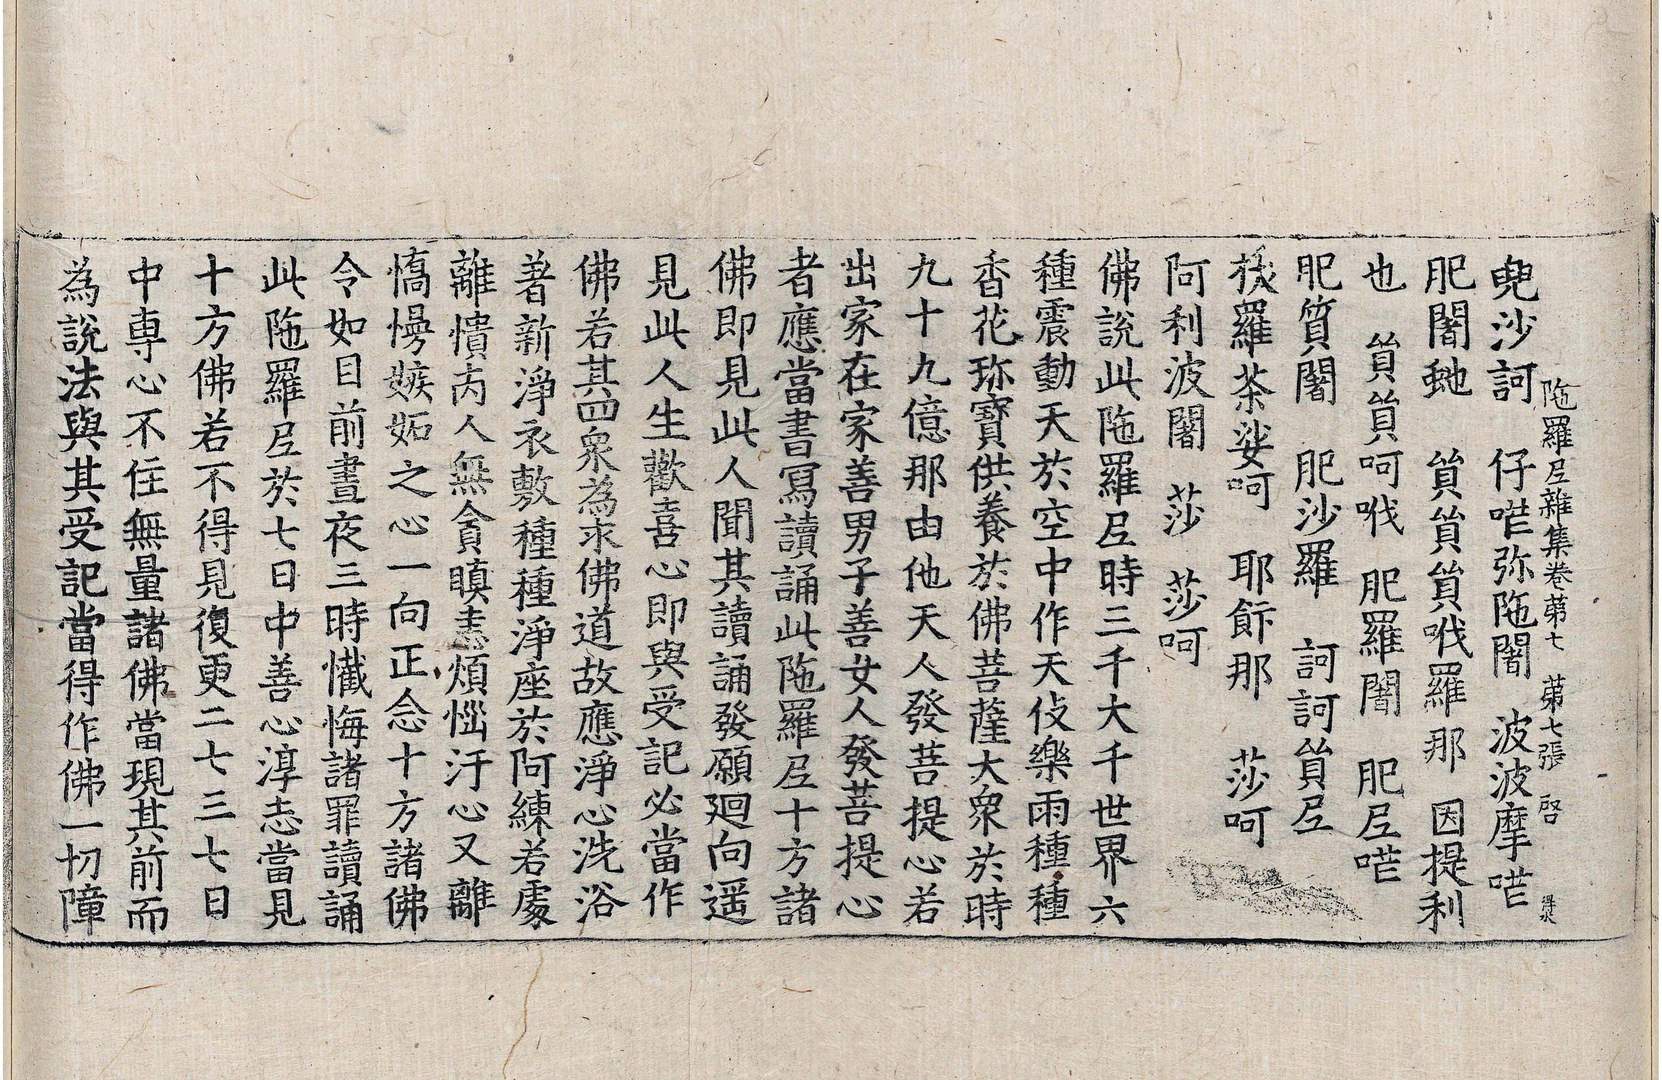 陁羅尼雜集卷第七 第七張 啓
兜沙訶 仔呰弥陁闍 波波摩呰
肥闍虵 貿貿貿哦羅那 因提利
也 貿貿呵哦 肥羅闍 肥尼呰
肥質闍 肥沙羅 訶訶貿尼
拔羅茶娑呵 耶䭾那 莎呵
阿利波闍 莎 莎呵
佛說此陁羅尼時三千大千世界六
種震動天於空中作天伎樂雨種種
香花珎寶供養於佛菩薩大衆於時
九十九億那由他天人發菩提心若
出家在家善男子善女人發菩提心
者應當書寫讀誦此陁羅尼十方諸
佛即見此人聞其讀誦發願廻向遥
見此人生歡喜心即與受記必當作
佛若其四衆為求佛道故應淨心洗浴
著新淨衣敷種種淨座於阿練若處
離憒丙人無貪瞋恚煩惱汙心又離
憍慢嫉妬之心一向正念十方諸佛
令如目前晝夜三時懺悔諸罪讀誦
此陁羅尼於七日中善心淳志當見
十方佛若不得見復更二七三七日
中專心不住無量諸佛當現其前而
為說法與其受記當得作佛一切障